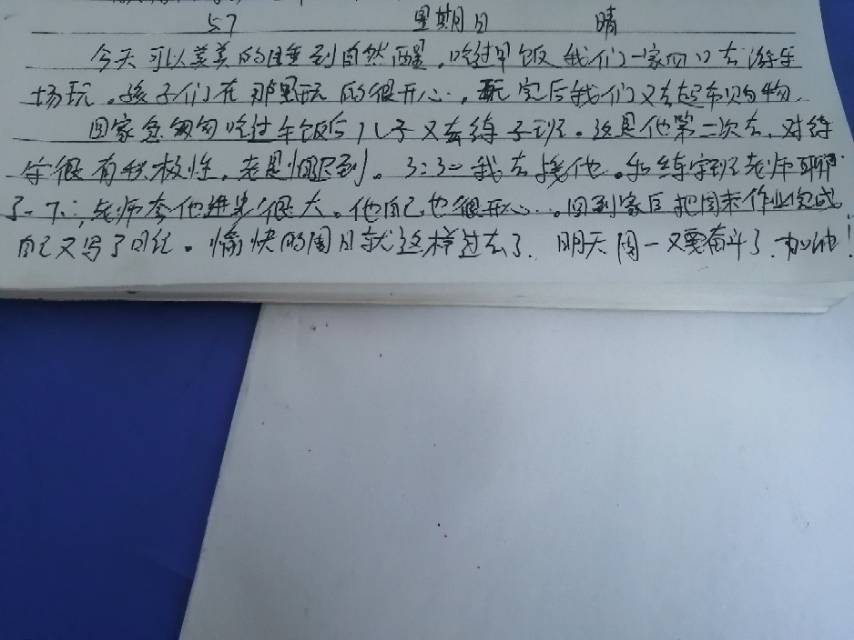 5.7 星期日 晴
今天可以美美的睡到自然醒，吃过早饭我们一家四口去游乐
场玩。孩子们在那里玩的很开心，玩完后我们又去超市购物
回家急匆匆吃过午饭后儿子又去练字班。这是他第二次去，对练
字很有积极性，老是怕迟到。3:30我去接他。和练字班老师聊
了一下，老师夸他进步很大。他自己也很开心。回到家后把周末作业完成
自己又写了日记。愉快的周日就这样过去了，明天周一又要奋斗了，加油！